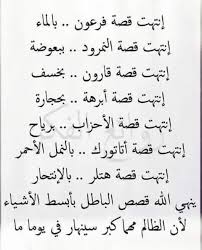 إنتهت قصة فرعون .. بالماء
إنتهت قصة النمرود .. ببعوضة
إنتهت قصة قارون .. بخسف
إنتهت قصة أبرهة .. بحجارة
إنتهت قصة الأحزاب .. برياح
إنتهت قصة أتاتورك .. بالنمل الأحمر
إنتهت قصة هتلر .. بالإنتحار
ينهي الله قصص الباطل بأبسط الأشياء
لأن الظالم مهما كبر سينهار في يوما ما